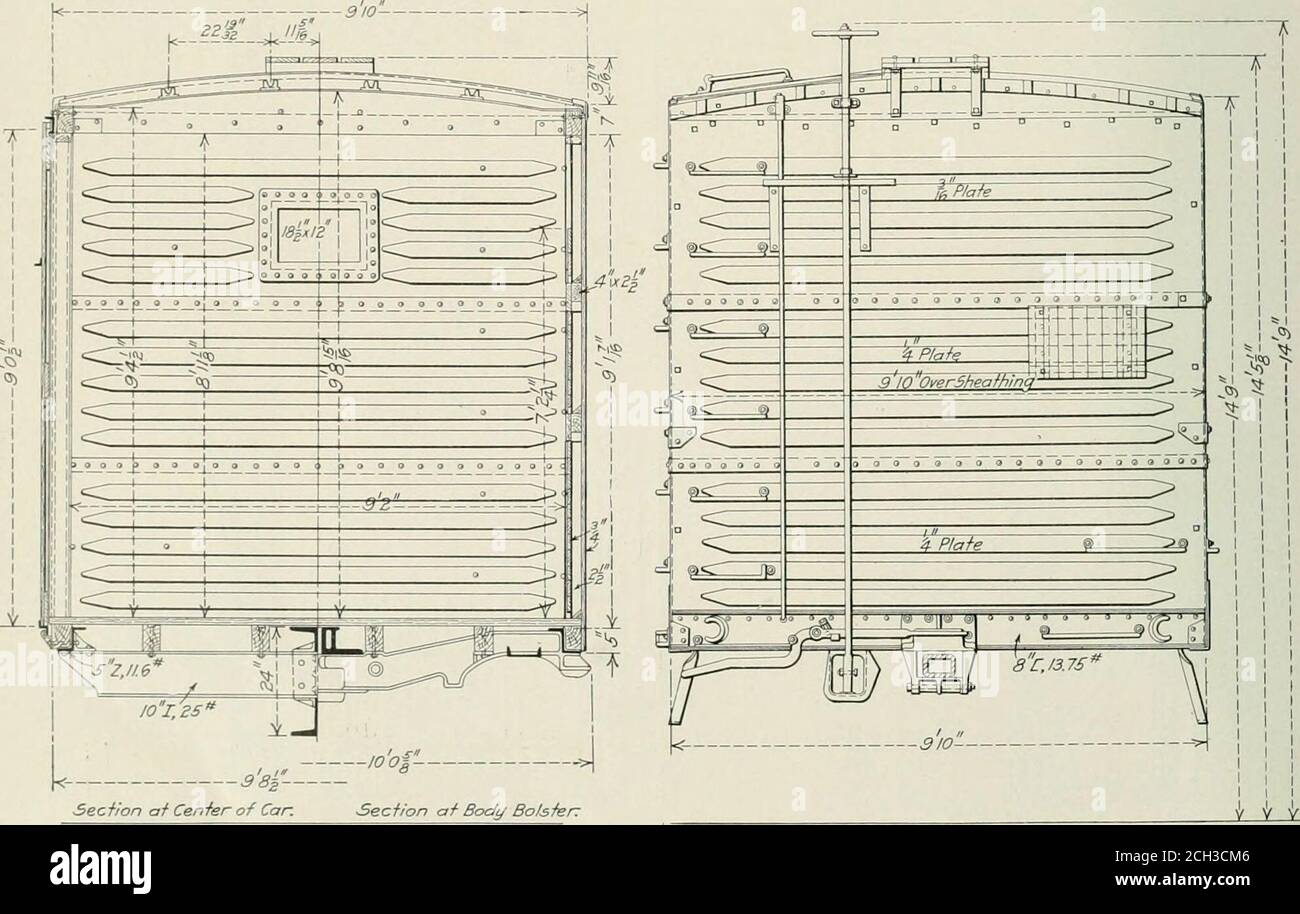 9'10"
22 19/32"
11 5/16"
9 11/16"
7"
9'0 1/2"
18 1/2"x12"
4"x2 1/2"
9'4 1/2"
8'11 1/8"
9'8 15/16"
7'2 1/4"
9'1 7/16"
9'2"
3/4"
2 1/2"
5"
5"Z,11.6#
24"
10"I,25#
10'0 5/8"
9'8 1/2"
Section at Center of Car.
Section at Body Bolster.
3/16" Plate
1/4" Plate
9'10"Over Sheathing
1/4" Plate
8"[,13.75#
9'10"
14'9"
14'5 1/8"
14'9"
alamy
Image ID: 2CH3CM6
www.alamy.com